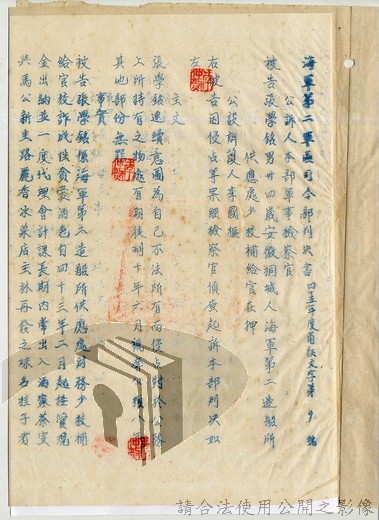 海軍第二軍區司令部判決書 四五年度角秩文字第9號
公訴人本部軍事檢察官
被告張學銘男廿四歲安徽桐城人海軍第二造船所
供應處少校補給官在押
公設辯護人李國樞
右被告因侵占等案經檢察官偵查起訴本部判決如
左
主文
張學銘連續意圖為自己不法所有而侵占對於公務
上所持有之物處有期徒刑十年六月褫奪公權
其他部份無罪
事實
被告張學銘係海軍第二造船所供應處財務少校補
給官役許成性貪婪酒色自四十三年二月起任實現
金出納並一度代理會計課長期內常出入海寮茶室
與馬公新生路麗香冰菓店主於再命之球名桂子者
請合法使用公開之影像